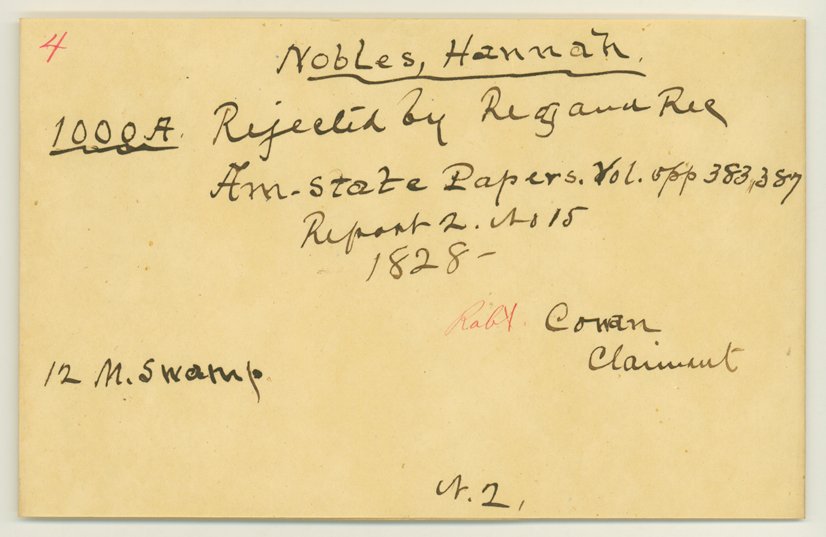 4
Nobles, Hannah.
1000 A. Rejected by Reg and Rec
Am-State Papers. Vol. 5 pp 383, 387
Report 2. No 15
1828-
Robt. Cowan
Claimant
12 M. Swamp.
N. 2,